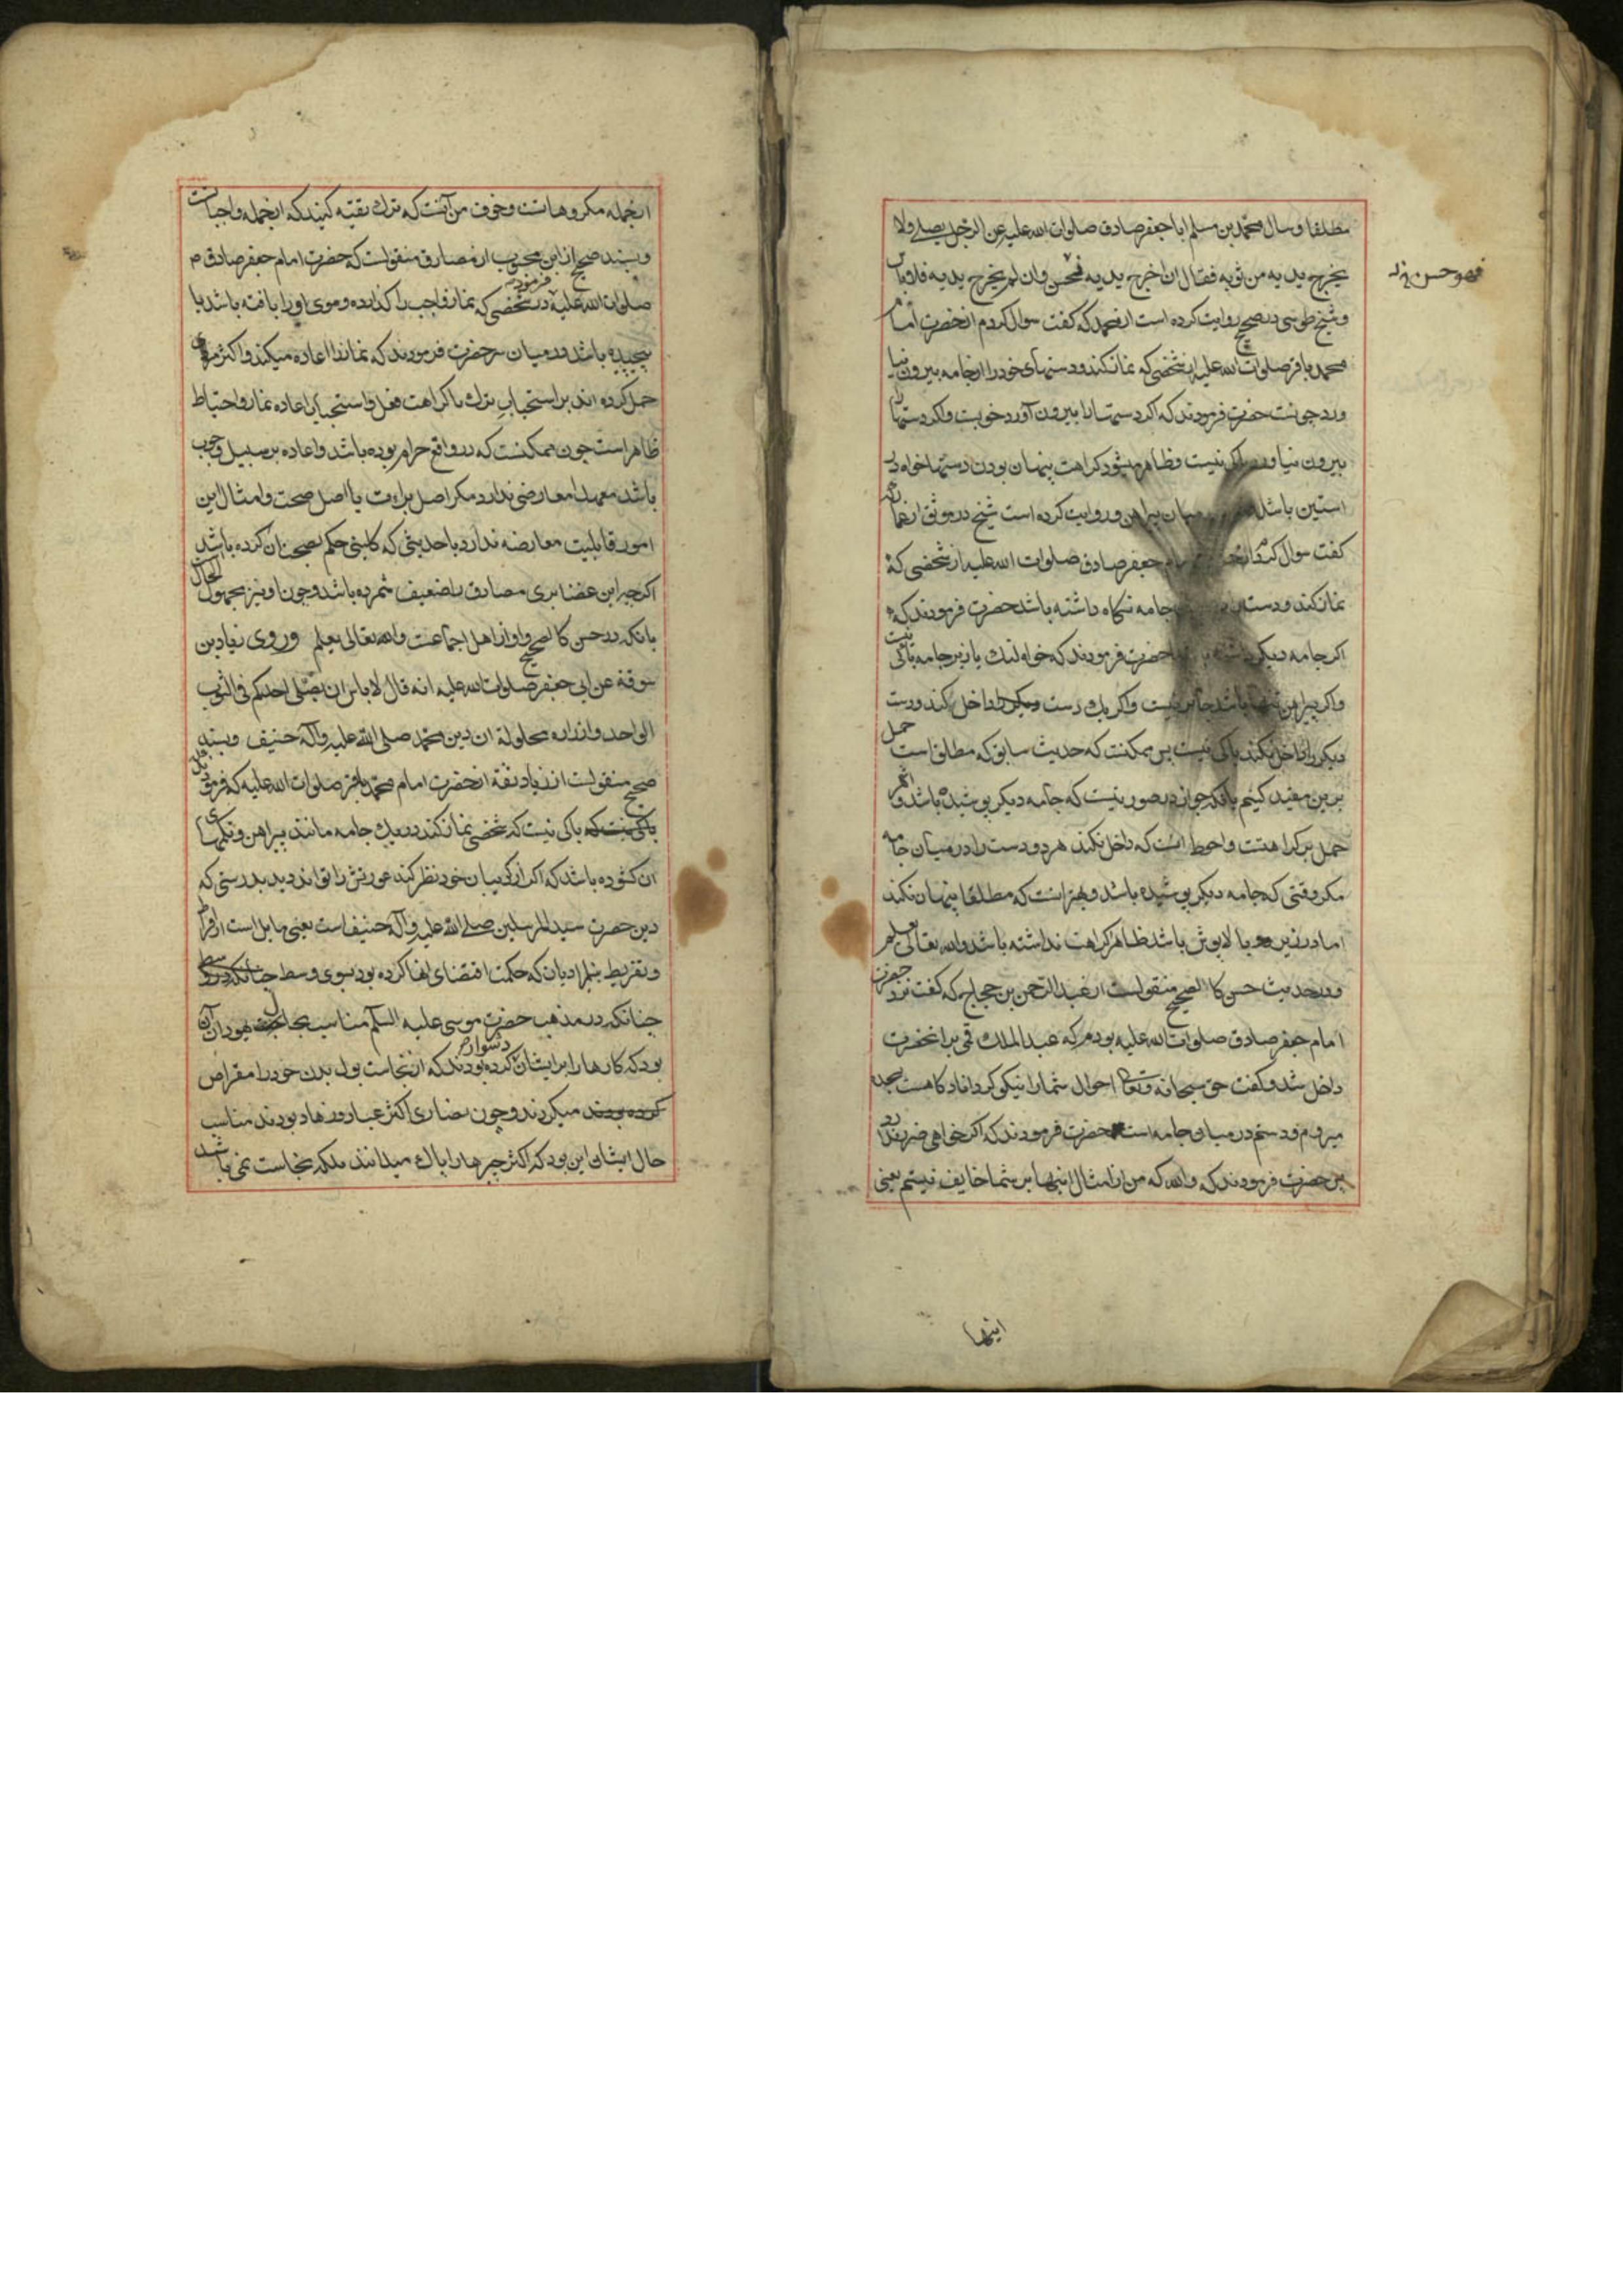 مطلقا و سال محمد بن مسلم ابا جعفر صادق صلوات الله علیه عن الرجل یصلی ولا
یخرج یدیه من ثوبه فقال ان اخرج یدیه فحسن وان لم یخرج یدیه فلا باس
فهو حسن
و شیخ طوسی در صحیح روایت کرده است از محمد که گفت سوال کردم از حضرت امام
محمد باقر صلوات الله علیه از شخصی که نماز کند و دستهای خود را از جامه بیرون نیا
ورد چونست حضرت فرمودند که اگر دستها را بیرون آورد خوبست و اگر دستها را
بیرون نیاورد باکی نیست و ظاهر میشود کراهت پنهان بودن دستها خواه در
استین باشد میان پیراهن و روایت کرده است شیخ در موثق از عمار که
کفت سوال کردم جعفر صادق صلوات الله علیه از شخصی که
نماز کند و دستان جامه نکاه داشته باشد حضرت فرمودند که
اکر جامه دیکر حضرت فرمودند که خواه لنک یا زیر جامه باکی نیست
و اکر پیراهن تنها باشد جایز نیست و اکر یک دست را داخل کند و دست
دیکر را داخل نکند باکی نیست پس ممکنست که حدیث سابق که مطلق است حمل
برین مقید کنیم بانکه جواز در صورتیست که جامه دیکر پوشیده باشد و اکر
حمل بر کراهتست و احوط انست که داخل نکند هر دو دست را در میان جامه
مکر وقتی که جامه دیکر پوشیده باشد و بهتر انست که مطلقا پنهان نکند
اما در زیر عبا یا لاپوش باشد ظاهرا کراهت نداشته باشد والله تعالی یعلم
و در حدیث حسن کالصحیح منقولست از عبد الرحمن بن حجاج که کفت نزد حضرت
امام جعفر صادق صلوات الله علیه بودم که عبد الملک قمی بر انحضرت
داخل شد و کفت حق سبحانه و تعالی احوال شما را نیکو کرداناد کاهست سجده
میروم و دستم در میان جامه است حضرت فرمودند که اکر خواهی ضرر ندارد
پس حضرت فرمودند که والله که من از امثال اینها بر شما خایف نیستم یعنی
اینها
از جمله مکروهاتست و خوف من آنست که ترک تقیه کنید که از جمله واجباتست
و بسند صحیح از ابن محبوب از مصادف منقولست که حضرت امام جعفر صادق
صلوات الله علیه فرمودند در شخصی که نماز واجب را کذارده و موی او را بافته باشد یا
پیچیده باشد در میان سر حضرت فرمودند که نماز را اعاده میکند و اکثر
حمل کرده اند بر استحباب ترک یا کراهت فعل و استحباب اعاده نماز و احتیاط
ظاهر است چون ممکنست که در واقع حرام بوده باشد و اعاده بر سبیل وجوب
باشد معهذا معارضی ندارد مکر اصل براءت یا اصل صحت و امثال این
امور قابلیت معارضه ندارد با حدیثی که کلینی حکم بصحت ان کرده باشد
اکرچه ابن غضایری مصادف را ضعیف شمرده باشد و چون او نیز مجهول الحال
بانکه در حسن کالصحیح و او از اهل اجماعت والله تعالی یعلم و روی زیاد بن
سوقة عن ابی جعفر صلوات الله علیه انه قال لا باس ان یصلی احدکم فی الثوب
الواحد و ازراره محلولة ان دین محمد صلی الله علیه وآله حنیف و بسند
صحیح منقولست از زیاد ثقة از حضرت امام محمد باقر صلوات الله علیه که فرمودند که
باکی نیست که باکی نیست که شخصی نماز کند در یک جامه مانند پیراهن و تکمهای
ان کشوده باشد که اکر از کریبان خود نظر کند عورتش را تواند دید بدرستی که
دین حضرت سید المرسلین صلی الله علیه وآله حنیف است یعنی مایل است از افراط
و تفریط سایر ادیان که حکمت اقتضای انها کرده بود بسوی وسط چنانکه در
چنانکه در مذهب حضرت موسی علیه السلام مناسب بحال یهودان آن
بود که کارها را بر ایشان دشوار کرده بودند که از نجاست بول بدن خود را مقراض
کرده بودند میکردند و چون نصاری اکثر عباد و زهاد بودند مناسب
حال ایشان این بود که اکثر چیزها را پاک میدانند بلکه نجاست نمی باشد